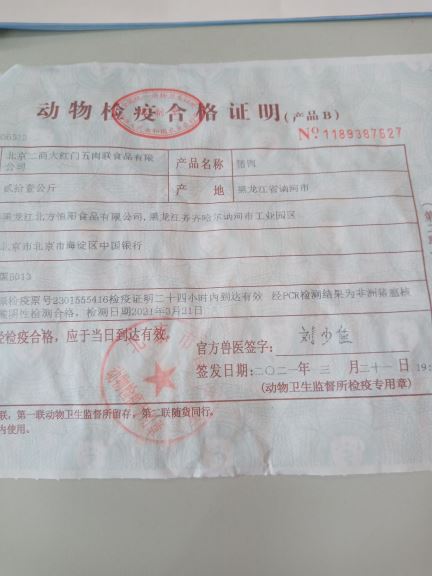 动物检疫合格证明(产品B)
№1189387527
北京二商大红门五肉联食品有限公司
产品名称 猪肉
贰拾壹公斤
产地 黑龙江省讷河市
黑龙江北方恒阳食品有限公司,黑龙江齐齐哈尔讷河市工业园区
北京市北京市海淀区中国银行
原检疫票号2301555416检疫证明二十四小时内到达有效 经PCR检测结果为非洲猪瘟核
酸阴性检测合格,检测日期2021年3月21日
经检疫合格,应于当日到达有效。
官方兽医签字:
签发日期:二〇二一年 三 月 二十一 日
(动物卫生监督所检疫专用章)
联,第一联动物卫生监督所留存,第二联随货同行。
内使用。